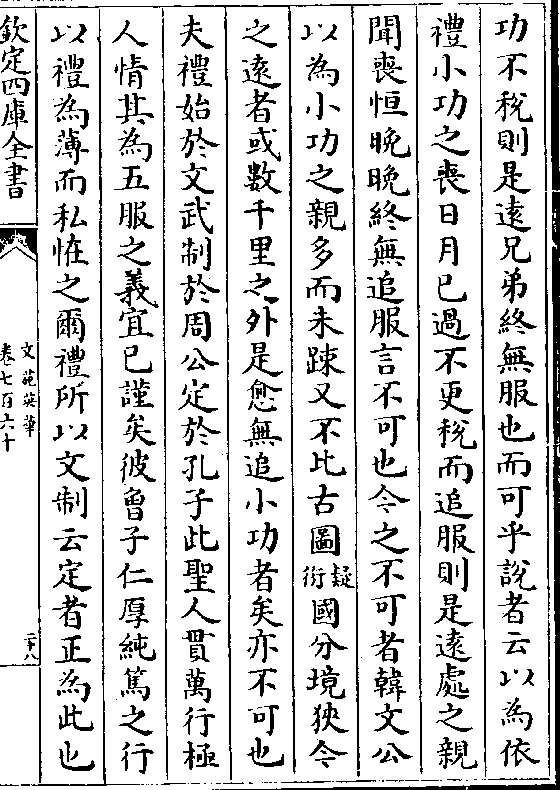 功不稅則是遠兄弟終無服也而可乎說者云以為依
禮小功之喪日月已過不更稅而追服則是遠處之親
聞喪恒晚晚終無追服言不可也今之不可者韓文公
以為小功之親多而未踈又不比古圖疑衍國分境狹今
之遠者或數千里之外是愈無追小功者矣亦不可也
夫禮始於文武制於周公定於孔子此聖人貫萬行極
人情其為五服之義宜已謹矣彼曾子仁厚純篤之行
以禮為薄而私恠之爾禮所以文制云定者正為此也
欽定四庫全書
文苑英華
卷七百六十
二十八